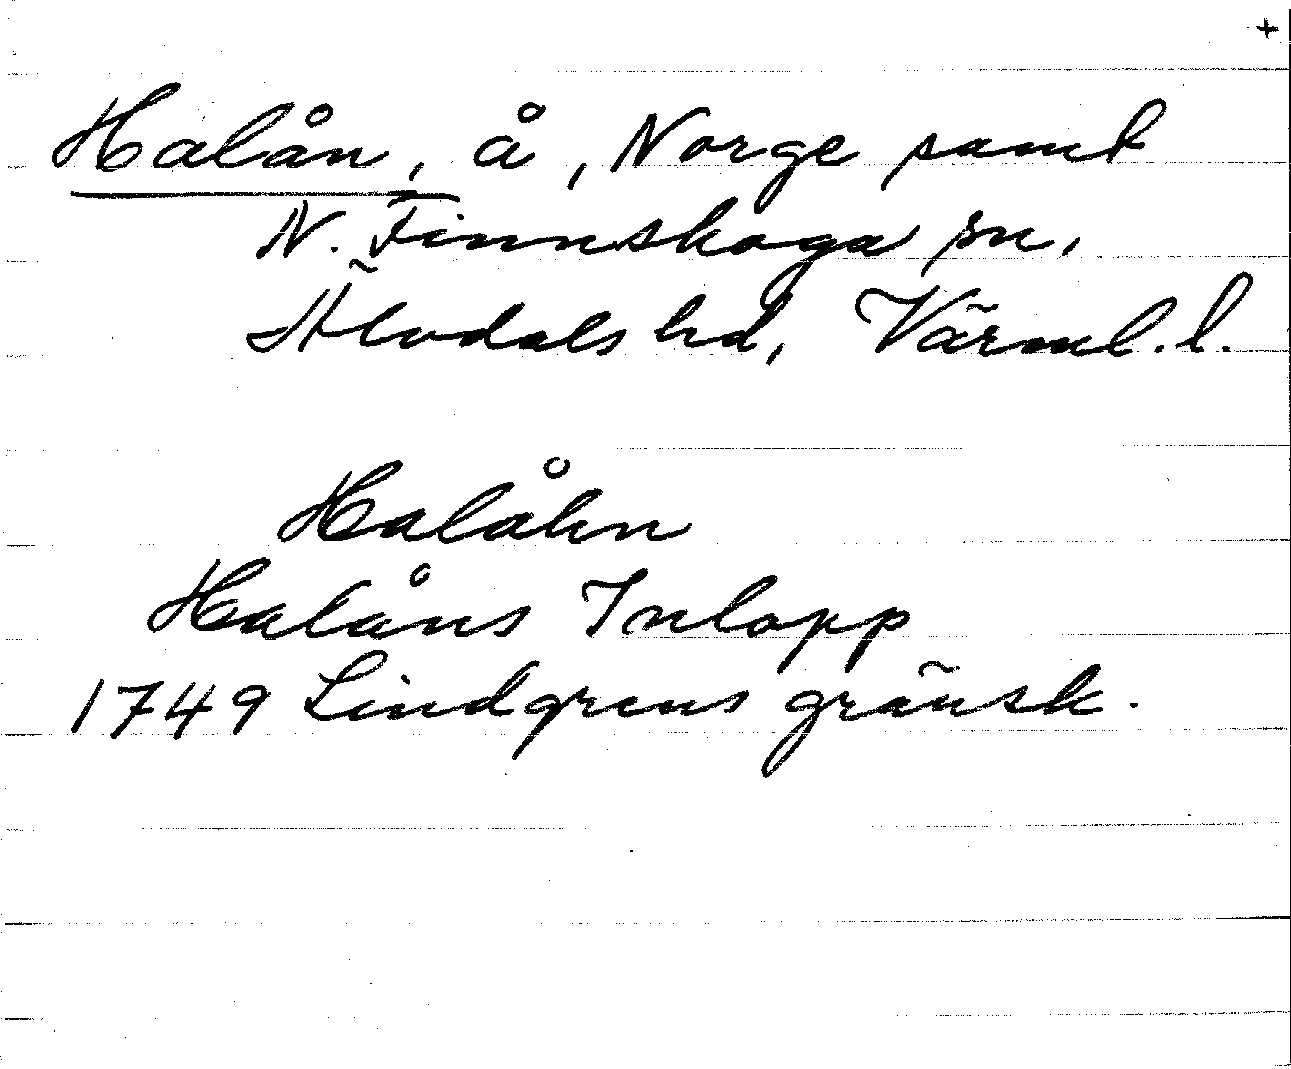 +
Halån, å, Norge samt
N. Finnskoga sn,
Älvdals hd, Värml. l.
Halåhn
Halåns Inlopp
1749 Lindgrens gränsk.